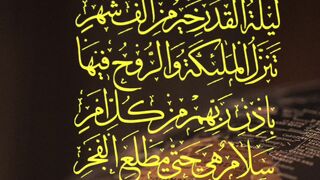 ليلة القدر خير من ألف شهر
تنزل الملئكة والروح فيها
بإذن ربهم من كل أمر
سلام هي حتى مطلع الفجر